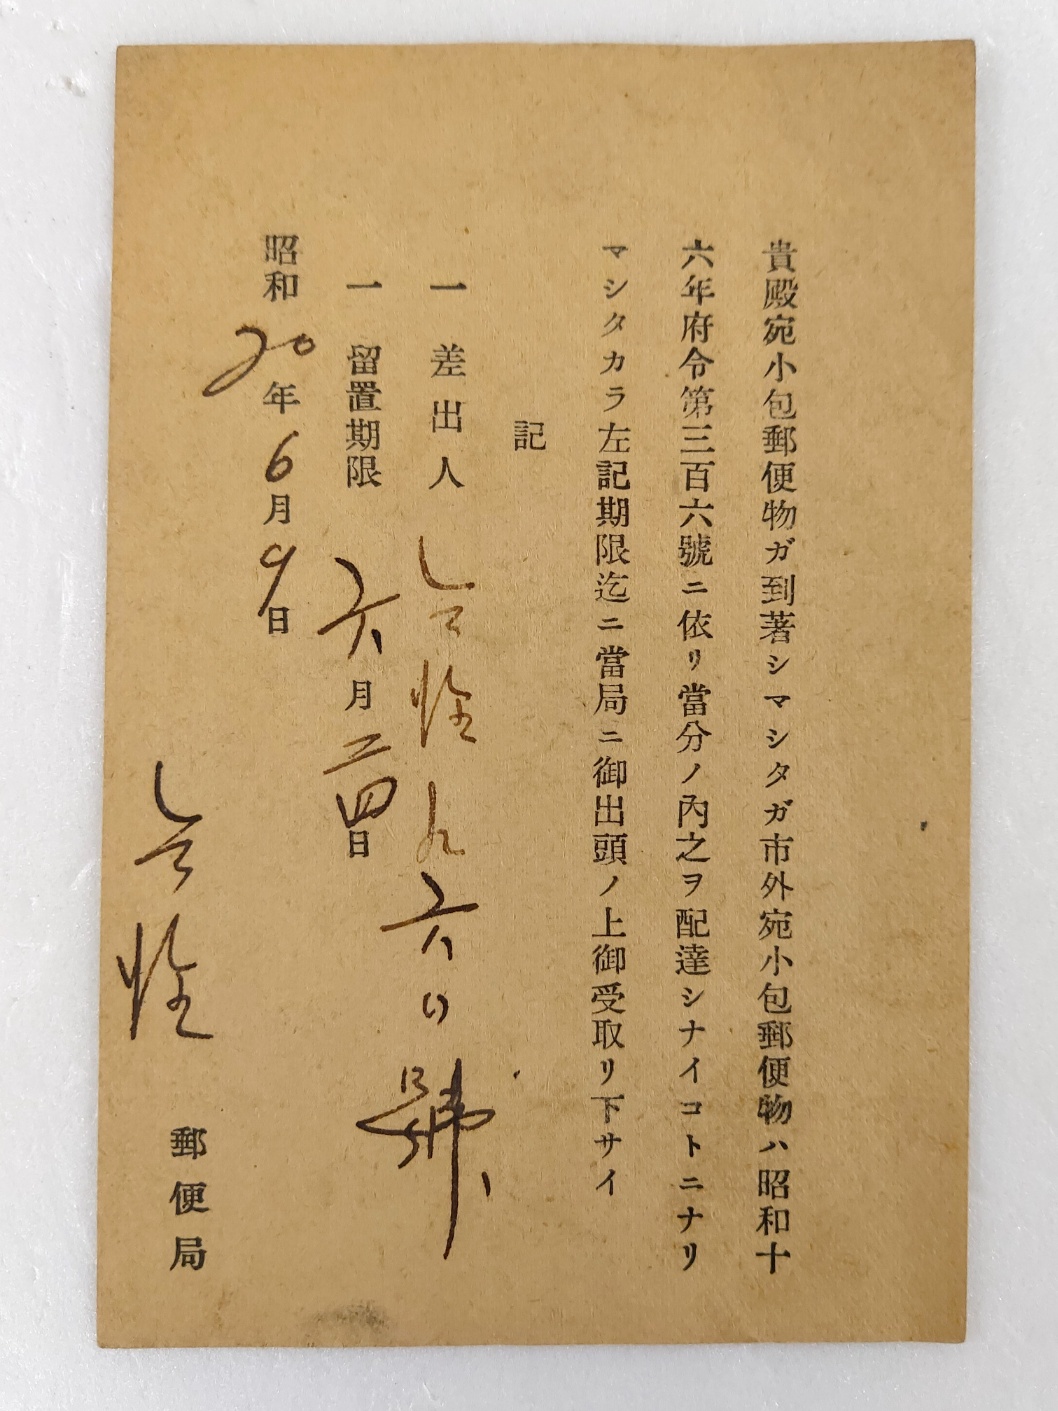 貴殿宛小包郵便物ガ到著シマシタガ市外宛小包郵便物ハ昭和十
六年府令第三百六號ニ依リ當分ノ內之ヲ配達シナイコトニナリ
マシタカラ左記期限迄ニ當局ニ御出頭ノ上御受取リ下サイ
記
一 差出人 六 號
一 留置期限 六月二四日
昭和20年6月9日
郵便局